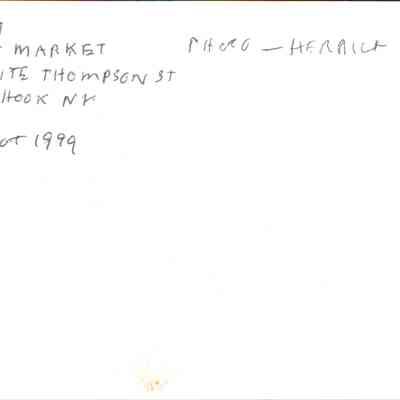 MARKET
ITE THOMPSON ST
HOOK NY
OT 1999
PHOTO — HERRICK